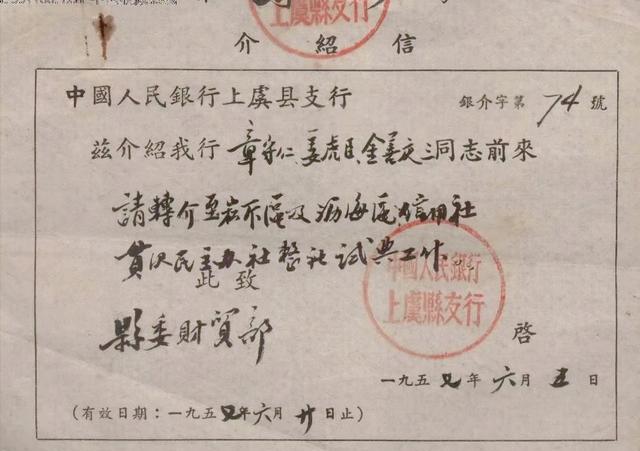 上虞縣支行
介紹信
中國人民銀行上虞县支行 銀介字第74號
兹介紹我行章守仁、姜虎臣、金善庆三同志前來
請轉介至崧下區及沥海區信用社
貫沏民主办社整社試典工作。
此致
縣委財貿部
中國人民銀行
上虞縣支行
啓
一九五 年六月五日
(有效日期：一九五 年六月廿日止)